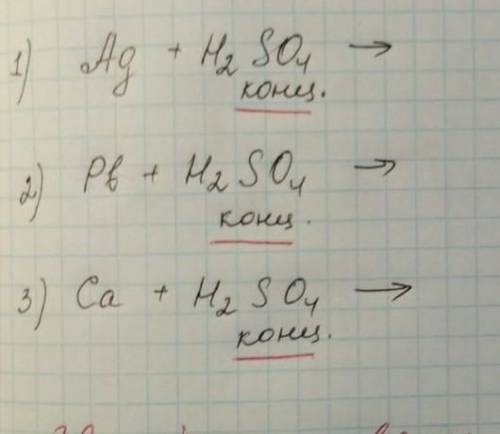 1) Ag + H2SO4 →
конц.
2) Pb + H2SO4 →
конц.
3) Ca + H2SO4 →
конц.